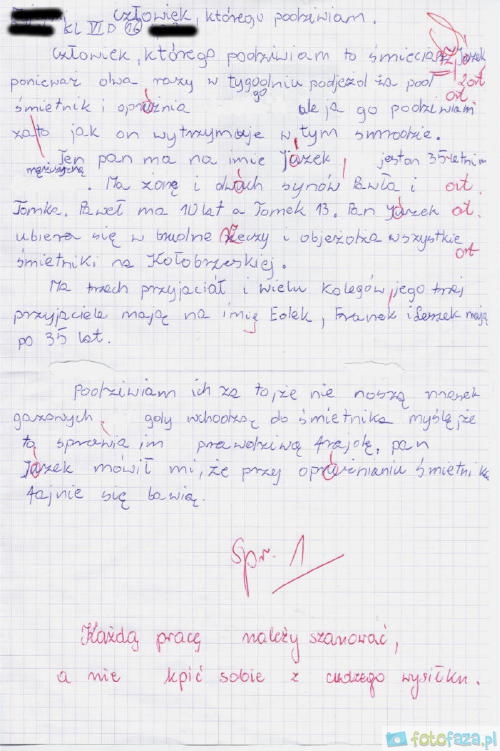 Człowiek, którego podziwiam.
KL VI D
Człowiek, którego podziwiam to śmieciaż Jazek
ponieważ dwa razy w tygodniu podjeżdża pod 2 ort
śmietnik i oprużnia go ale ja go podziwiam ort
za to jak on wytrzymuje w tym smrodzie.
Ten pan ma na imie Jazek, jest on 35 letnim
mężczyzną. Ma żonę i dwuch synów Pawła i ort.
Tomka. Paweł ma 10 lat a Tomek 13. Pan Jazek ort.
ubiera się w brudne żeczy i objeżdża wszystkie
śmietniki na Kołobrzeskiej. ort
Ma trzech przyjaciół i wielu kolegów, jego trzej
przyjaciele mają na imię Lolek, Franek i Leszek mają
po 35 lat.
Podziwiam ich za to, że nie noszą masek
gazowych, gdy wchodzą do śmietnika myślę, że
to sprawia im prawdziwą frajdę, pan
Jazek mówił mi, że przy oprużnianiu śmietnika
fajnie się bawią.
Spr. 1
Każdą pracę należy szanować,
a nie kpić sobie z cudzego wysiłku.
fotofaza.pl